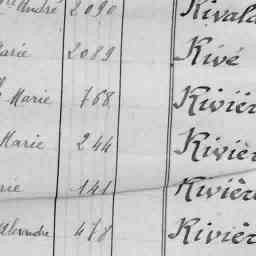 André 2090 Rival
Marie 2089 Rivé
Marie 768 Rivièr
Marie 244 Rivièr
rie 141 Rivièr
Alexandre 478 Rivièr